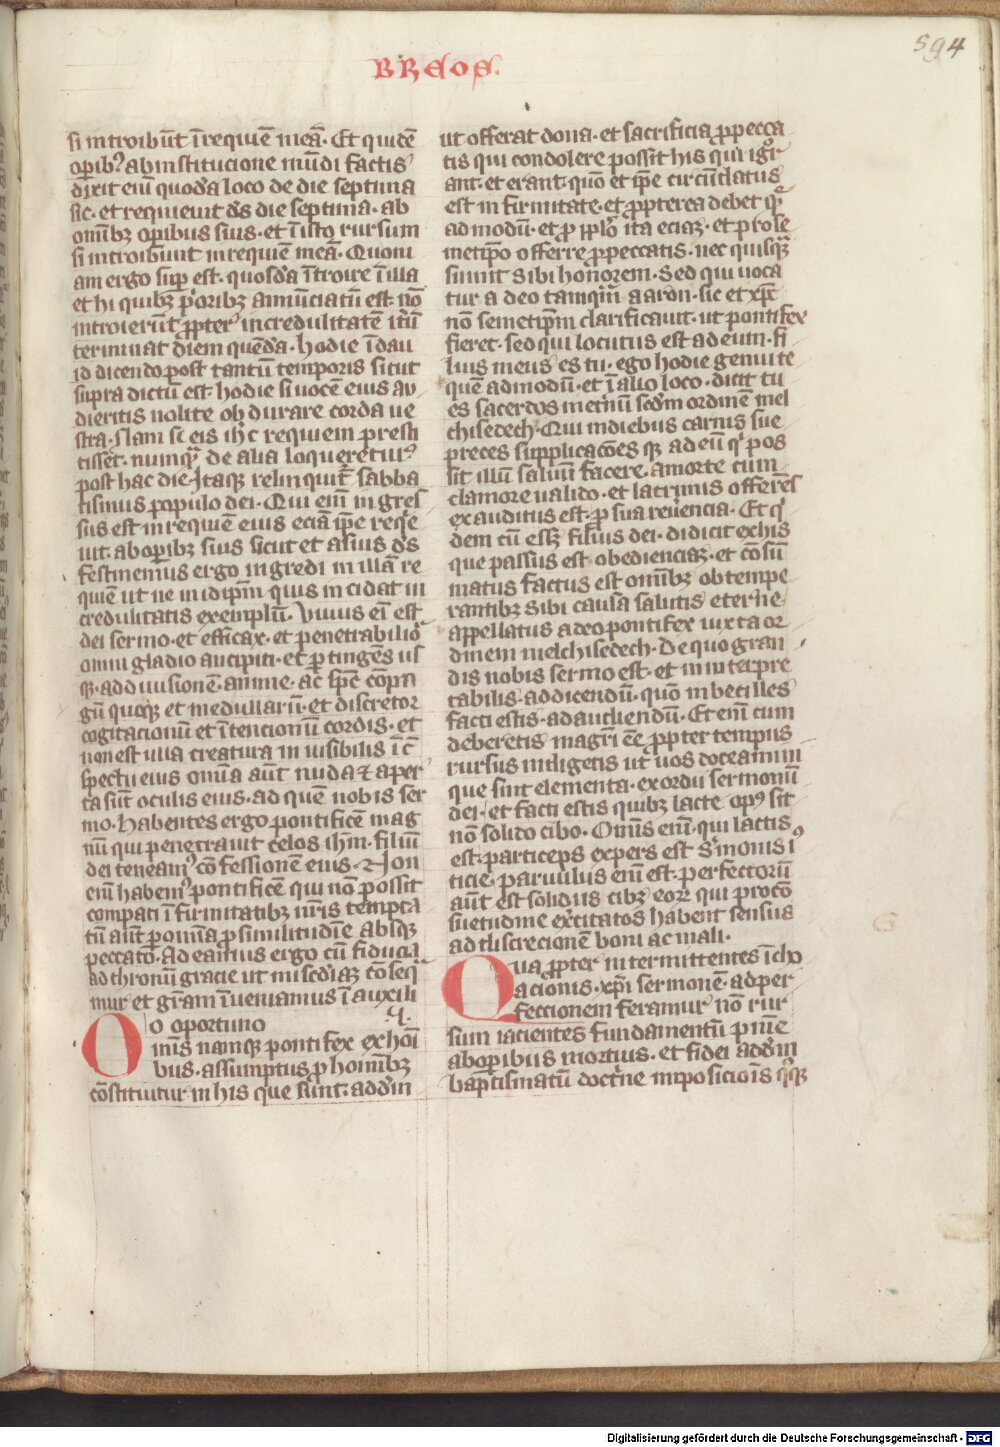 BREOS.
594
si introibūt ī requiē meā. Et quidē
opib⁹ ab institucione mūdi factis
dixit eni͂ quodā loco de die septima
sic. et requieuit ds̄ die septima. ab
omībꝫ opibus suis. et ī isto rursum
si introibunt in requiem meā. Quoni
am ergo sup est. quosdā ītroire ī illā
et hi quibꝫ prioribꝫ annūciatū est. nō
introierūt ꝓpter incredulitatē itūͬ
terminat diem quēdā. hodie ī daui
id dicendo post tantū temporis sicut
supra dictū est. hodie si uocē eius au
dieritis nolite obdurare corda ue
stra. Nam si eis ih̄c requiem presti
tisset. nūnqͣ de alia loqueretur
post hac die. Itaqꝫ relinquit͛ sabba
tismus populo dei. Qui eni͂ ingres
sus est in requiē eius eciā ip̄e reqͥe
uit. ab opibꝫ suis sicut et a suis ds̄
festinemus ergo ingredi in illā re
quiē ut ne in idip̄m quis incidat in
credulitatis exemplū. Viuus ei͂ est
dei sermo. et efficax. et penetrabilioͬ
omni gladio ancipiti. et ꝑtingēs us
qꝫ. ad diuisionē anime. ac sp̄c cōpa
gū quoqꝫ et medullarū. et discretor
cogitacionū et ītencionū cordis. et
non est ulla creatura inuisibilis ī cō
spectu eius omīa aūt nuda ⁊ aper
ta sūt oculis eius. ad quē nobis ser
mo. Habentes ergo pontificē mag
nū qui penetrauit celos ih̄m filiū
dei teneamꝰ cōfessionē eius. Non
eni͂ habemꝰ pontificē qui nō possit
compati īfirmitatibꝫ nr̄is tempta
tū aūt ꝑ omīa ꝓ similitudīe absqꝫ
peccato. Adeamus ergo cū fiducia
ad thronū gracie ut mis̄cdiāꝫ cōseqͣ
mur et gr̄am īueniamus ī auxili
o oportuno
Omīs namqꝫ pontifex ex homī
bus. assumptus ꝓ homībꝫ
cōstituitur in his que sunt. ad dm̄
ut offerat dona. et sacrificia ꝓ pecca
tis qui condolere possit his qui igͦr
ant. et erant. quō et ip̄e circūdatus
est infirmitate. et ꝓpterea debet qͣ
admodū. et ꝓ pplo ita eciaꝫ. et pro se
metip̄o offerre ꝓ peccatis. nec quisqͣ
sumit sibi honorem. Sed qui uoca
tur a deo tamqͣm aaron. sic et xp̄c
nō semetip̄m clarificauit. ut pontifex
fieret. sed qui locutus est ad eum. fi
lius meus es tu. ego hodie genui te
quē admodū. et ī alio loco. dicit tu
es sacerdos in et͛nū scd̄m ordinē mel
chisedech. Qui in diebus carnis sue
preces supplicacōes qꝫ ad eū qͥ pos
sit illū saluū facere. a morte cum
clamore ualido. et lacrimis offerēs
exauditus est. ꝓ sua reuēncia. Et qͥ
dem cū esꝫ filius dei. didicit ex his
que passus est obedienciaꝫ. et cōsū
matus factus est omībꝫ obtempe
rantibꝫ sibi causa salutis eterne.
appellatus a deo pontifex iuxta or
dinem melchisedech. De quo gran
dis nobis sermo est. et in interpre
tabilis. ad dicendū. quō inbecilles
facti estis. ad audiendū. Et eni͂ cum
deberetis magr̄i eē ꝓpter tempus
rursus indigetis ut uos doceamini
que sint elementa. exordii sermonū
dei. et facti estis quibꝫ lacte opꝰ sit
nō solido cibo. Omīs eni͂. qui lactis
est. particeps expers est s͛monis iꝰ
ticie. paruulus eni͂ est. perfectorū
aūt est solidus cibꝫ eorꝫ qui pro cō
suetudine exercitatos habent sensus
ad discrecionē boni ac mali.
Qua ꝓpter intermittentes īcho
acionis. xp̄i sermonē. ad per
fectionem feramur nō rur
sum iacientes fundamentū pnīe
ab opibus mortuis. et fidei ad dm̄
baptismatū doctͥne imposicioīs qͦqꝫ
Digitalisierung gefördert durch die Deutsche Forschungsgemeinschaft - DFG